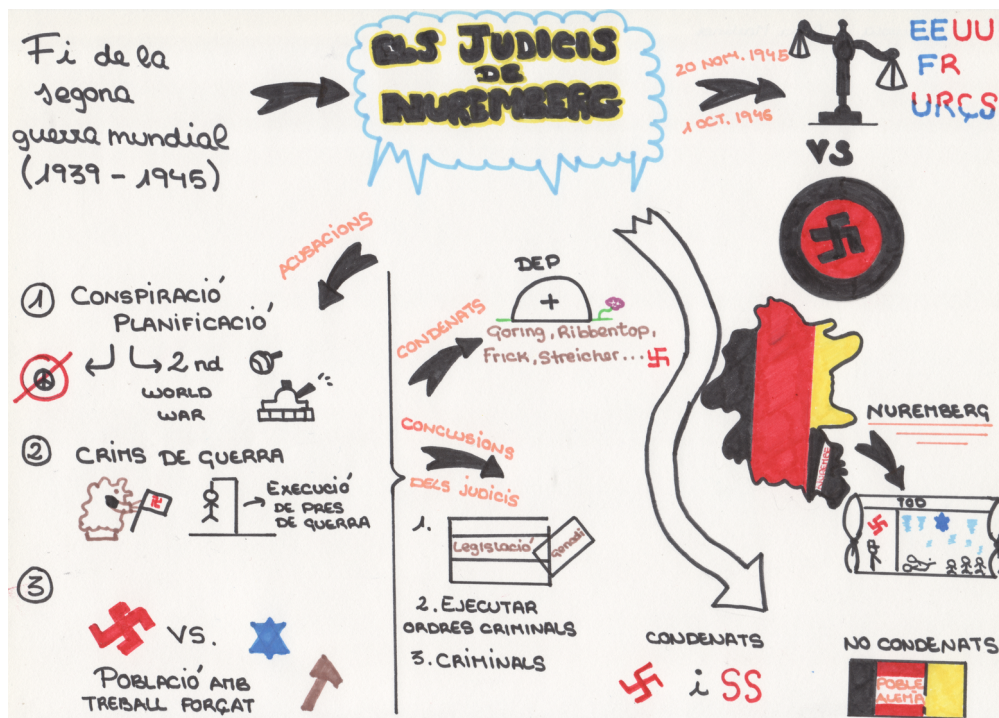 Fi de la
segona
guerra mundial
(1939 - 1945)
ELS JUDICIS
DE
NUREMBERG
20 NOV. 1945
1 OCT. 1946
EEUU
FR
URÇS
VS
ACUSACIONS
1 CONSPIRACIÓ
PLANIFICACIÓ
2nd
WORLD
WAR
2 CRIMS DE GUERRA
EXECUCIÓ
DE PRES
DE GUERRA
3
VS.
POBLACIÓ AMB
TREBALL FORÇAT
CONDENATS
DEP
Goring, Ribbentop,
Frick, Streicher...
CONCLUSIONS
DELS JUDICIS
1.
Legislació
Genocidi
2. EJECUTAR
ORDRES CRIMINALS
3. CRIMINALS
NUREMBERG
CONDENATS
i SS
NO CONDENATS
POBLE
ALEMÀ